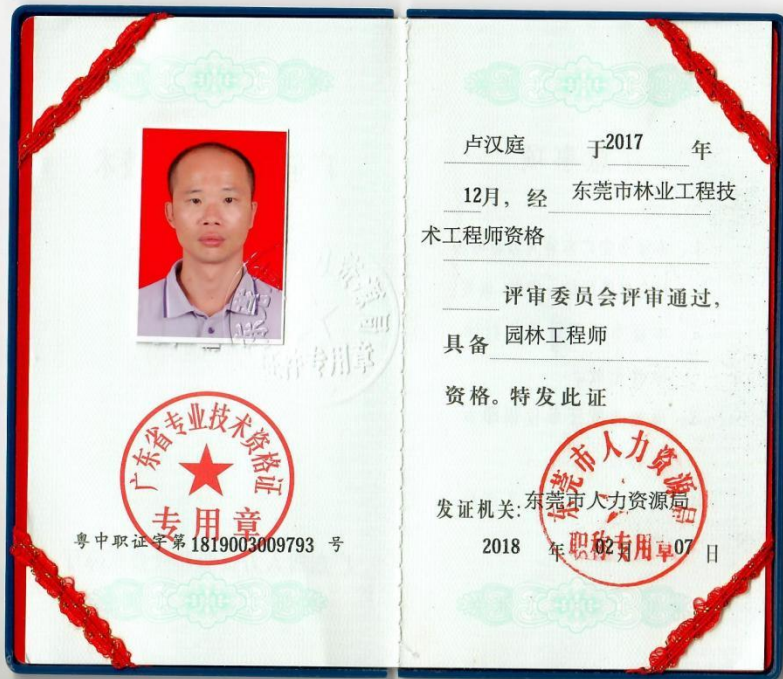 广东省专业技术资格证
专用章
粤中职证字第 1819003009793 号
卢汉庭 于2017 年
12月，经 东莞市林业工程技
术工程师资格
评审委员会评审通过，
具备 园林工程师
资格。特发此证
东莞市人力资源局
职称专用章
发证机关：东莞市人力资源局
2018 年 02月 07 日